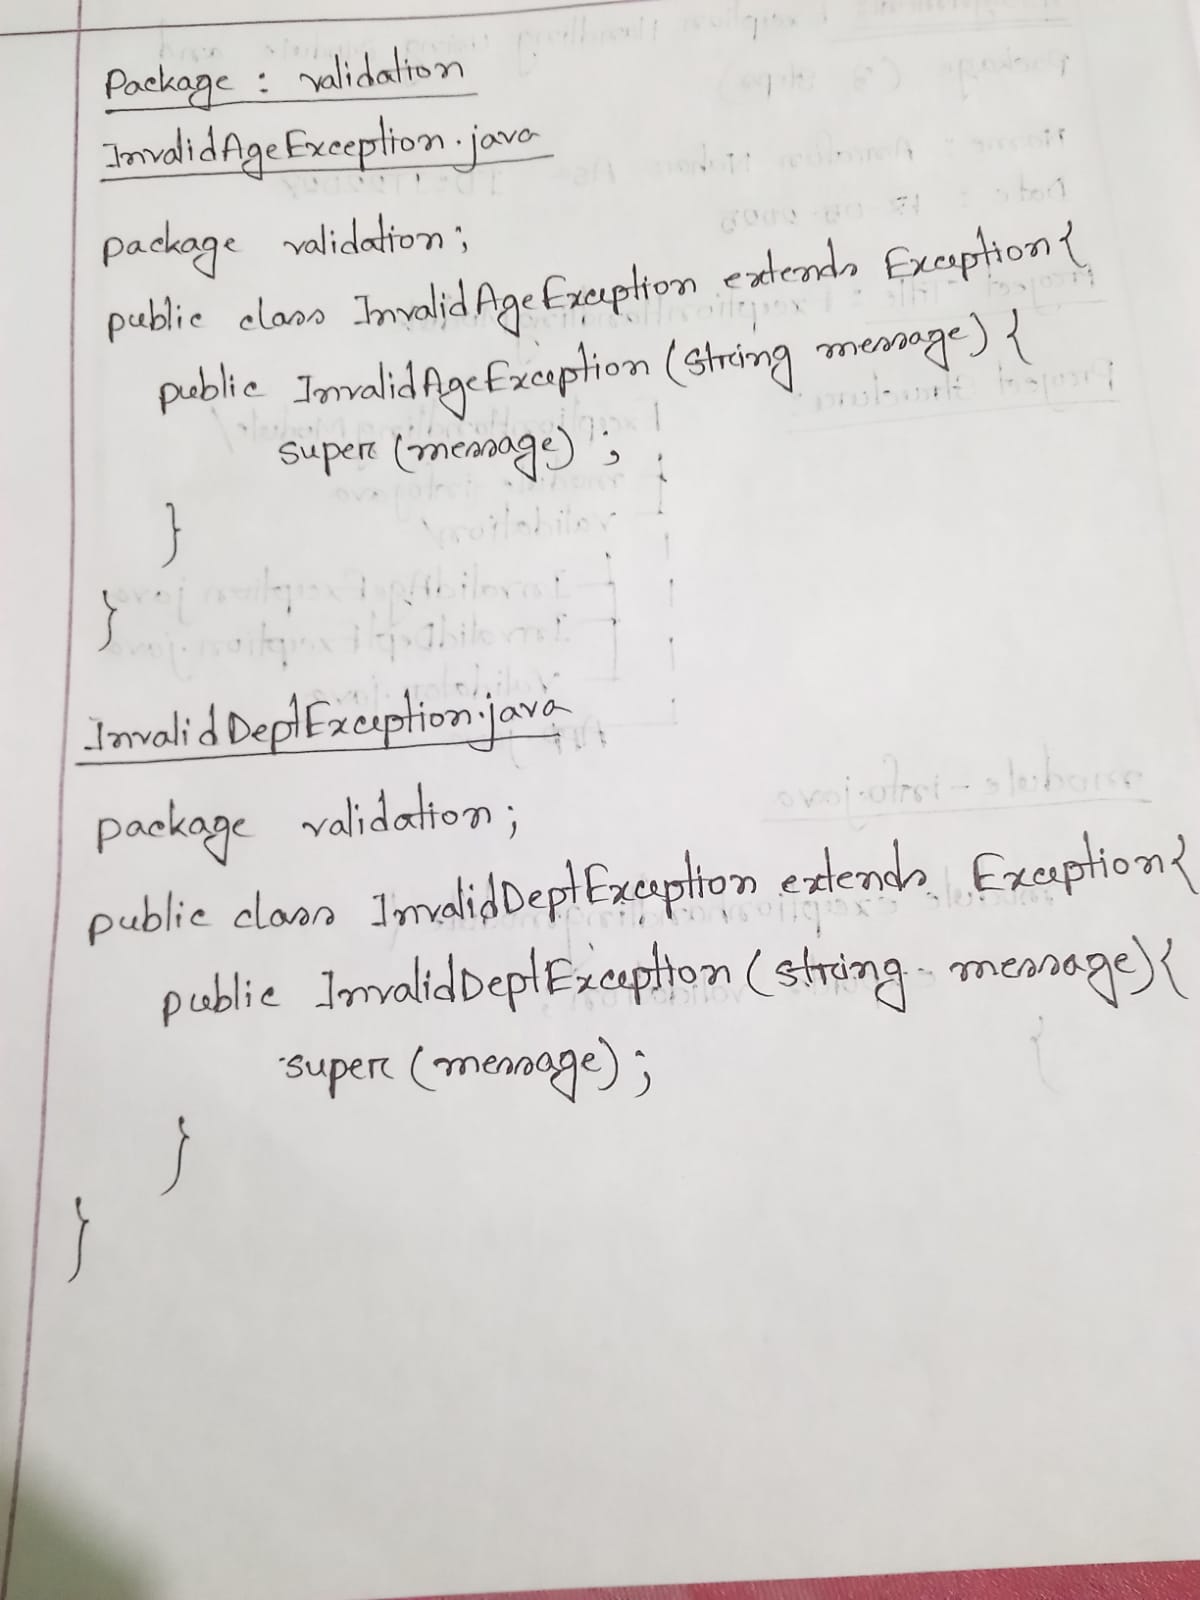 Package : validation
InvalidAgeException.java
package validation;
public class InvalidAgeException extends Exception{
public InvalidAgeException (string message) {
super (message) ;
}
}
InvalidDeptException.java
package validation;
public class InvalidDeptException extends Exception{
public InvalidDeptException (string message){
super (message) ;
}
}